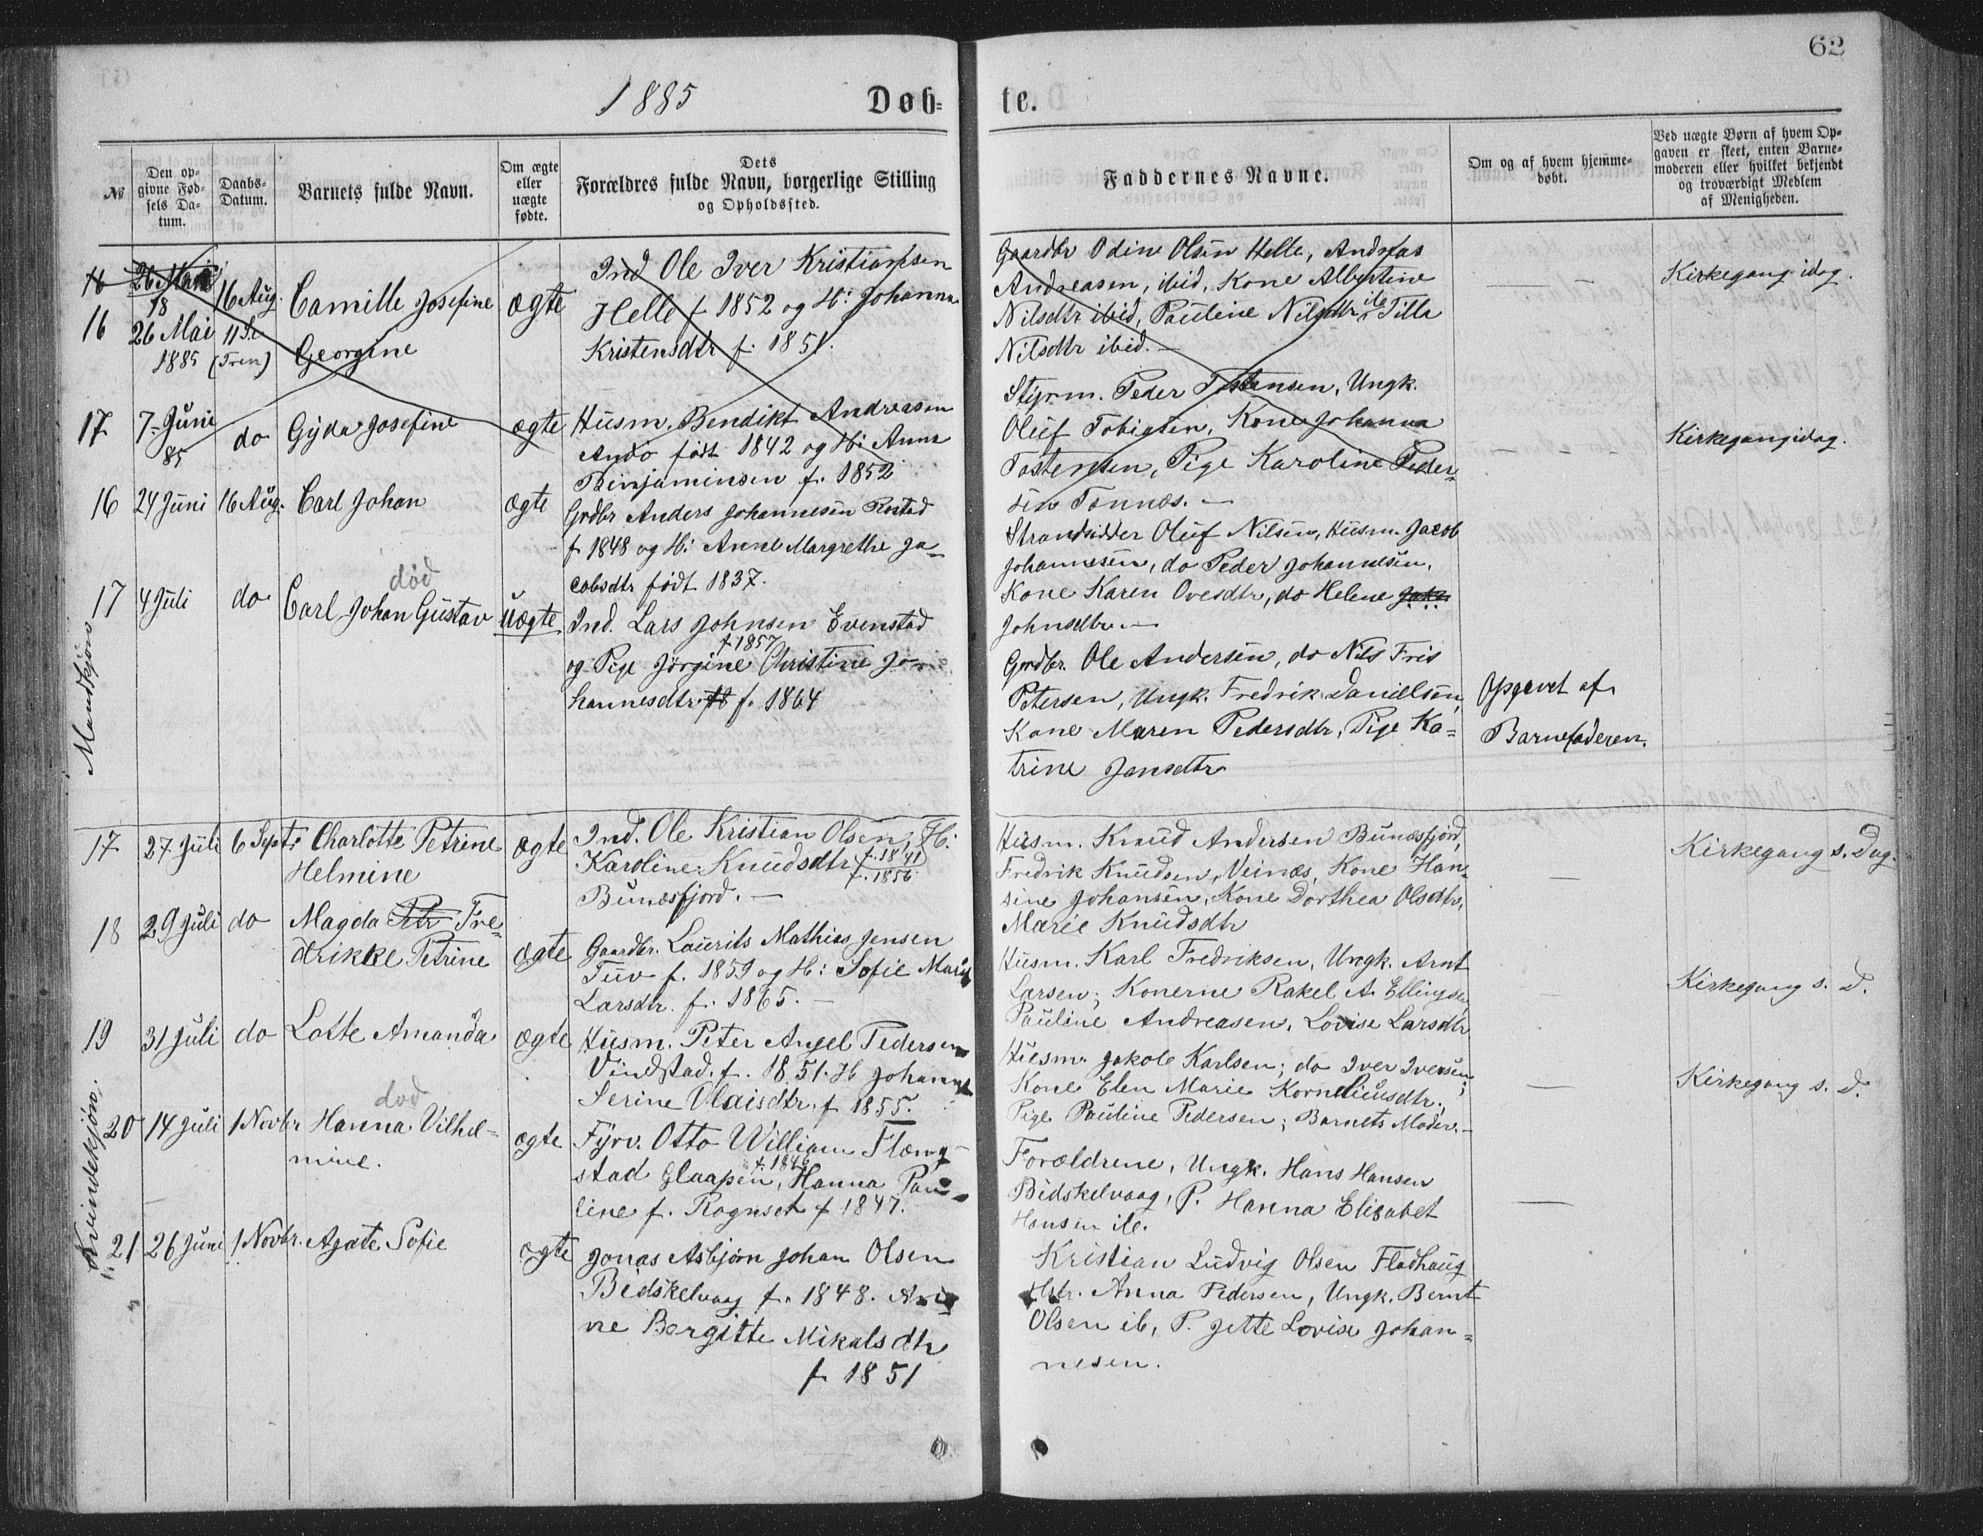 62
1885 Døb= te.
№
Den op=
givne Fød=
sels Da=
tum.
Daabs=
Datum.
Barnets fulde Navn.
Om ægte
eller
uægte
fødte.
Dets
Forældres fulde Navn, borgerlige Stilling
og Opholdssted.
Faddernes Navne.
Om og af hvem hjemme=
døbt.
Ved uægte Børn af hvem Op=
gaven er skeet, enten Barne=
moderen eller hvilket bekjendt
og troværdigt Medlem
af Menigheden.
Mandkjøn
16 26 Mai
18
16 26 Mai 1885
16 Aug.
11 S.e
(Tren)
Camille Josefine
Georgine
ægte
Ind Ole Iver Kristiansen
Helle f 1852 og H: Johanna
Kristensdtr f. 1851.
Gaardbr Odin Olsen Helle, Andreas
Andreasen, ibid, Kone Albertine
Nilsdtr ibid, Pauline Nilsdtr ib Tilla
Nilsdtr ibid.—
Kirkegang idag.
17 7 Juni
85
do
Gyda Josefine
ægte
Husm. Bendikt Andreasen
Andø født 1842 og H: Anna
Binjaminsen f. 1852
Styrm. Peder Tostensen, Ungk.
Oluf Tobiasen, Kone Johanna
Tostensen, Pige Karoline Peder-
sen Tønnes.—
Kirkegang idag.
16 24 Juni 16 Aug. Carl Johan
ægte
Grdbr Anders Johannesen Rostad
f. 1848 og H: Anne Margrethe Ja-
cobsdtr født 1837.
Strandsidder Oluf Nilsen, Husm. Jacob
Johannesen, do Peder Johannesen,
Kone Karen Ovesdtr, do Helene
Johnsdtr.—
17 4 Juli do
død
Carl Johan Gustav
uægte
Ind. Lars Johnsen Evenstad
f 1857
og Pige Jørgine Christine Jo-
hannesdtr f. 1864
Grdbr. Ole Andersen, do Nils Fris
Petersen, Ungk. Fredrik Danielsen,
Kone Maren Pedersdtr, Pige Ka-
trine Jensdtr
Opgivet af
Barnefaderen.
Kvindekjøn.
17 27 Juli 6 Septr Charlotte Petrine
Helmine
ægte
Ind. Ole Kristian Olsen, H:
f. 1841
Karoline Knudsdtr f. 1856
Bunesfjord.—
Husm. Knud Andersen Bunesfjord,
Fredrik Knudsen, Veines, Kone Han
sine Johansen, Kone Dorthea Olsdtr,
Marie Knudsdtr
Kirkegang s. Dag.
18 29 Juli do Magda Fre-
drikke Petrine
ægte
Gaardbr. Laurits Mathias Jensen
Tuv f. 1859 og H: Sofie Marie
Larsdtr. f. 1865.—
Husm. Karl Fredriksen, Ungk. Arnt
Larsen; Konerne Rakel A. Ellingsen
Pauline Andreasen, Lovise Larsdtr
Kirkegang s. D.
19 31 Juli do Lotte Amanda
ægte
Husm. Peter Angel Pedersen
Vindstad. f. 1851. H Johanna
Serine Olaisdtr. f 1855.
Husm. Jakob Karlsen; do Iver Iversen;
Kone Elen Marie Korneliusdtr;
Pige Pauline Pedersen; Barnets Moder.—
Kirkegang s. D.
20 14 Juli 1 Novbr
død
Hanna Vilhel-
mine.
ægte
Fyrv. Otto William Flæng-
f. 1846
stad Glaapen, Hanna Pau-
line f. Rognset f 1847.
Forældrene, Ungk. Hans Hansen
Bidskelvaag, P. Hanna Elisabet
Hansen ib.
21 26 Juni 1 Novbr. Agate Sofie
ægte
Jonas Asbjørn Johan Olsen
Bidskelvaag f. 1848.
ne Bergitte Mikalsdtr
f. 1851
Kristian Ludvig Olsen Fladhaug
Anna Pedersen, Ungk. Bernt
Olsen ib, P. Jette Lovise Johan-
nesen.